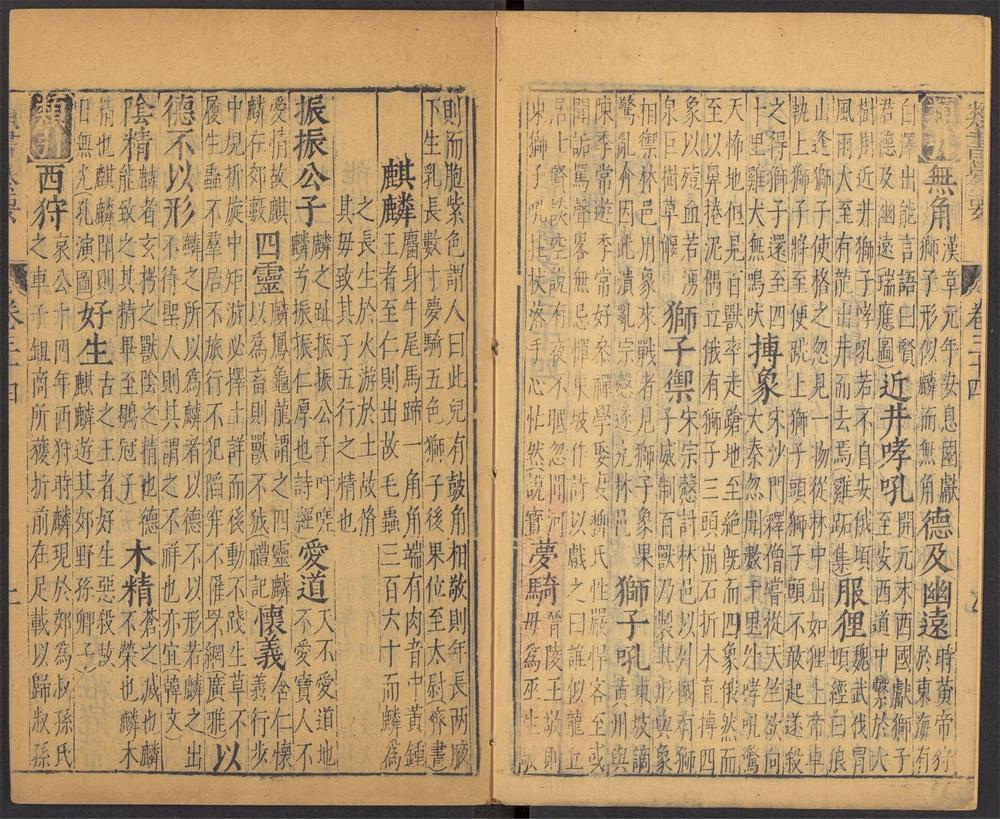 卷三十四
無角 漢章元年安息國獻
獅子形似麟而無角 德及幽遠 時黃帝狩
於東海有
白澤出能言語曰賢
君德及幽遠瑞應圖 近井哮吼 開元末西國獻獅子
至安西道中繫於大
樹樹近井獅子哮吼若不自安俄頃
風雨大至有龍出井而去焉雞跖集 服狸 魏武伐冒
頓經白狼
山逢獅子使格之忽見一物從林中出如狸上帝車
軛上獅子將至便跳上獅子頭獅子頭不敢起遂殺
之得獅子還至四
十里雞犬無鳴吠 搏象 宋沙門釋僧嘗從天竺欲向
大秦忽聞數十里外哮吼驚
天怖地但見百獸率走蹌地至絕既而四象俄然而
至以鼻捲泥偶立俄有獅子三頭崩石折木直搏四
象以殪血若湧
泉巨樹草偃 獅子禦 宋宗愨討林邑以列國有獅
子威制百獸乃製其形與象
相禦林邑用象來戰者見獅子象果
驚亂奔因此潰亂宗愨逐克林邑 獅子吼 東坡謫
黃州與
陳季常遊季常好參禪學娶妻獅氏性嚴悍客至或
聞詬罵聲客無忌憚東坡作詩以戲之曰誰似龍丘
居士賢談空說有夜不眠忽聞河
東獅子吼拄杖落手心忙然說實 夢騎 晉陵王敬則
母為巫生敬
則而胞紫色謂人曰此兒有鼓角相敬則年長兩腋
下生乳長數寸夢騎五色獅子後果位至太尉齊書
麒麟 麕身牛尾馬蹄一角角端有肉音中黃鍾
王者至仁則出故毛蟲三百六十而麟為
之長生於火游於土故脩
其毋致其子五行之精也
振振公子 麟之趾振振公子吁嗟
麟兮振振仁厚也詩經 愛道 天不愛道地
不愛寶人不
愛情故麒
麟在郊藪 四靈 麟鳳龜龍謂之四靈麟
以為畜則獸不狘禮記 懷義 含仁懷
義行步
中規折旋中矩游必擇土詳而後動不踐生草不
履生蟲不羣居不旅行不犯陷穽不罹罘網廣雅 以
德不以形 麟之所以為麟者以德不以形若麟之出
不待聖人則其謂之不祥也亦宜韓文
陰精 麟者玄枵之獸陰之精也德
能致之其精畢至鶡冠子 木精 蒼之滅也
不榮也麟木
精也麒麟鬪則
日無光孔演圖 好生 古之王者好生惡殺故
麒麟遊其郊野孫卿子
西狩 哀公十四年西狩時麟現於郊為叔孫氏
之車子鉏商所獲折前左足載以歸叔孫
卷三十四